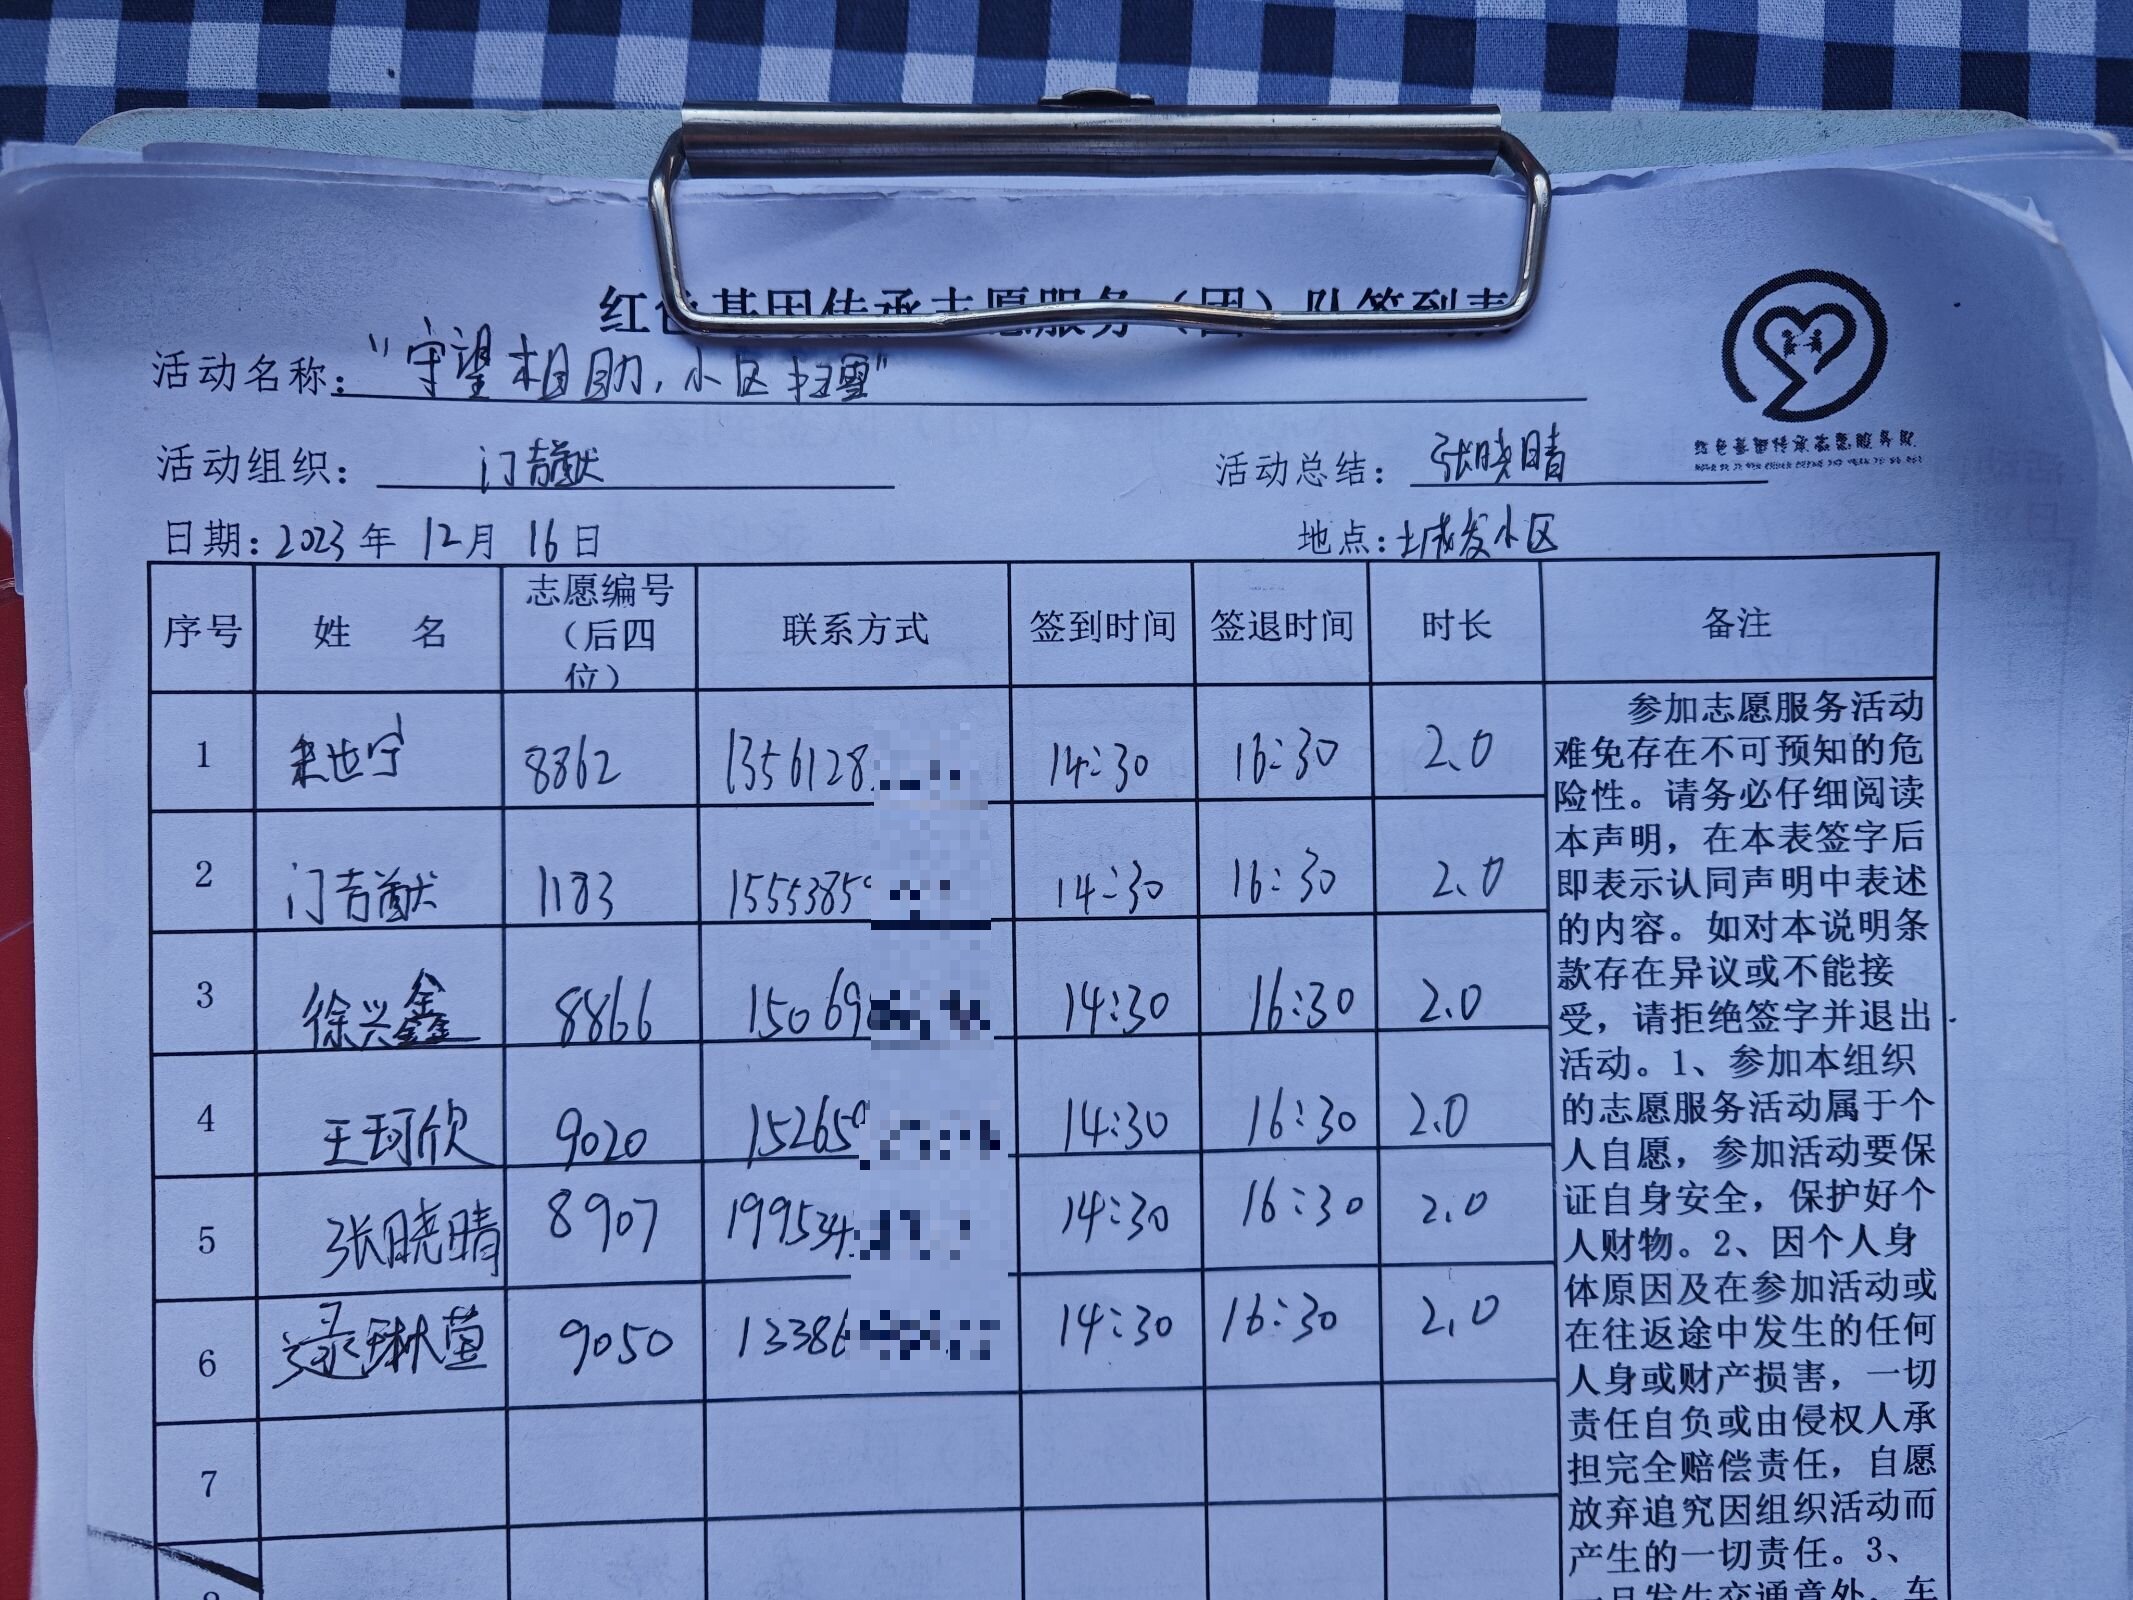 红色基因传承志愿服务（团）队签到表
活动名称：“守望相助，小区扫雪”
活动组织：门吉猷
活动总结：张晓晴
红色基因传承志愿服务队
日期：2023年 12月 16日
地点：土城发小区
序号 姓 名 志愿编号（后四位） 联系方式 签到时间 签退时间 时长 备注
1 来世宁 8862 1356128 14:30 16:30 2.0
2 门吉猷 1183 1555385 14:30 16:30 2.0
3 徐兴鑫 8866 15069 14:30 16:30 2.0
4 王珂欣 9020 15265 14:30 16:30 2.0
5 张晓晴 8907 199534 14:30 16:30 2.0
6 逯琳萱 9050 13386 14:30 16:30 2.0
7
参加志愿服务活动
难免存在不可预知的危
险性。请务必仔细阅读
本声明，在本表签字后
即表示认同声明中表述
的内容。如对本说明条
款存在异议或不能接
受，请拒绝签字并退出
活动。1、参加本组织
的志愿服务活动属于个
人自愿，参加活动要保
证自身安全，保护好个
人财物。2、因个人身
体原因及在参加活动或
在往返途中发生的任何
人身或财产损害，一切
责任自负或由侵权人承
担完全赔偿责任，自愿
放弃追究因组织活动而
产生的一切责任。3、
一旦发生交通意外、车